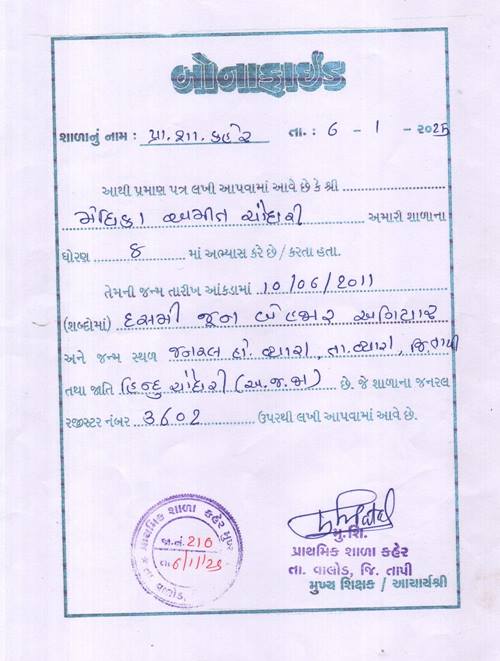 બોનાફાઇડ
શાળાનું નામ : પ્રા. શા. કહેર તા. : 6 - 1 - ૨૦25
આથી પ્રમાણ પત્ર લખી આપવામાં આવે છે કે શ્રી
અમીત ચૌધરી અમારી શાળાના
ધોરણ 8 માં અભ્યાસ કરે છે / કરતા હતા.
તેમની જન્મ તારીખ આંકડામાં 10/06/2011
(શબ્દોમાં) દસમી જૂન બે હજાર અગિયાર
અને જન્મ સ્થળ જનરલ હો. વ્યારા, તા. વ્યારા, જિ. તાપી
તથા જાતિ હિન્દુ ચૌધરી (અ.જ.જા) છે. જે શાળાના જનરલ
રજીસ્ટર નંબર 3602 ઉપરથી લખી આપવામાં આવે છે.
પ્રાથમિક શાળા કહેર મુખ્ય
જા.નં. 210
તા. 6/1/25
તા. વાલોડ.
મુ.શિ.
પ્રાથમિક શાળા કહેર
તા. વાલોડ, જિ. તાપી
મુખ્ય શિક્ષક / આચાર્યશ્રી